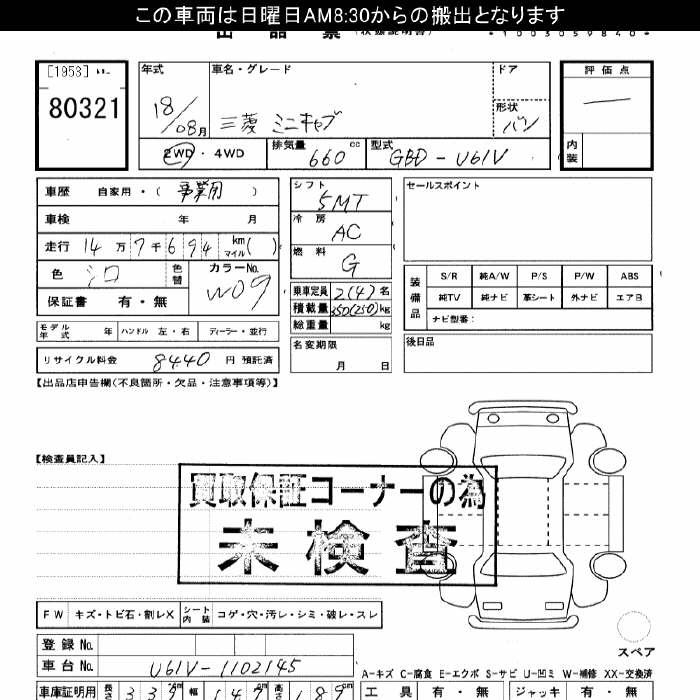 この車両は日曜日AM8:30からの搬出となります
出品票 (状態説明書) *1003059840*
[1953]
80321
年式 車名・グレード ドア 評価点
18/08月 三菱 ミニキャブ 形状 バン
2WD・4WD 排気量 660 cc 型式 GBD-U61V 内装
車歴 自家用・( 事業用 )
車検 年 月
走行 14万7千694 km マイル( )
色 シロ 色替 カラーNo. W09
保証書 有・無
モデル年式 年 ハンドル 左・右 ディーラー・並行
リサイクル料金 8440 円 預託済
シフト 5MT
冷房 AC
燃料 G
乗車定員 2(4) 名
積載量 350(250) kg
総重量 kg
名変期限 月 日
セールスポイント
装備品 S/R 純A/W P/S P/W ABS
純TV 純ナビ 革シート 外ナビ エアB
ナビ型番:
後日品
【出品店申告欄(不良箇所・欠品・注意事項等)】
【検査員記入】
買取保証コーナーの為
未検査
FW キズ・トビ石・割レX シート内装 コゲ・穴・汚レ・シミ・破レ・スレ
登録No.
車台No. U61V-1102145
スペア
A-キズ C-腐食 E-エクボ S-サビ U-凹ミ W-補修 XX-交換済
車庫証明用 長さ 339 cm 幅 147 cm 高さ 189 cm
工具 有・無 ジャッキ 有・無